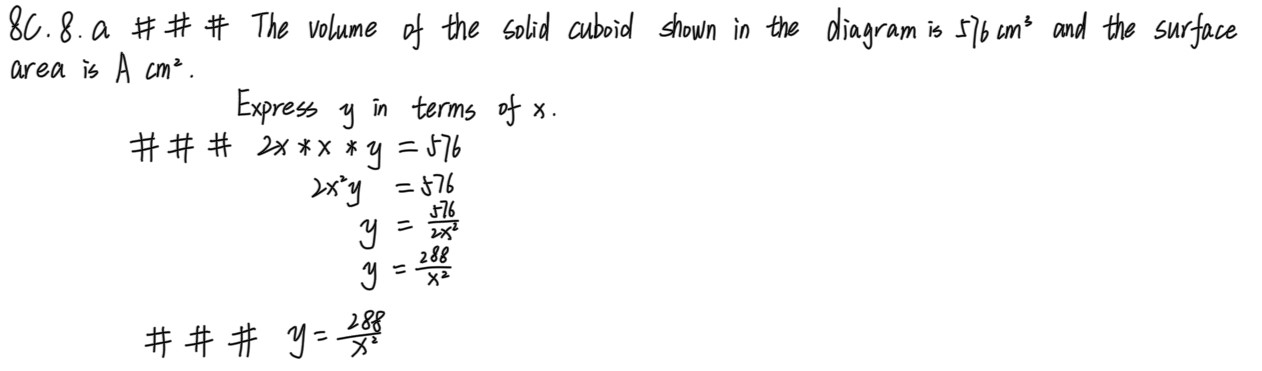 8C.8.a ### The volume of the solid cuboid shown in the diagram is 576 cm³ and the surface
area is A cm².
Express y in terms of x.
### 2x * x * y = 576
2x²y = 576
y = 576/2x²
y = 288/x²
### y = 288/x²